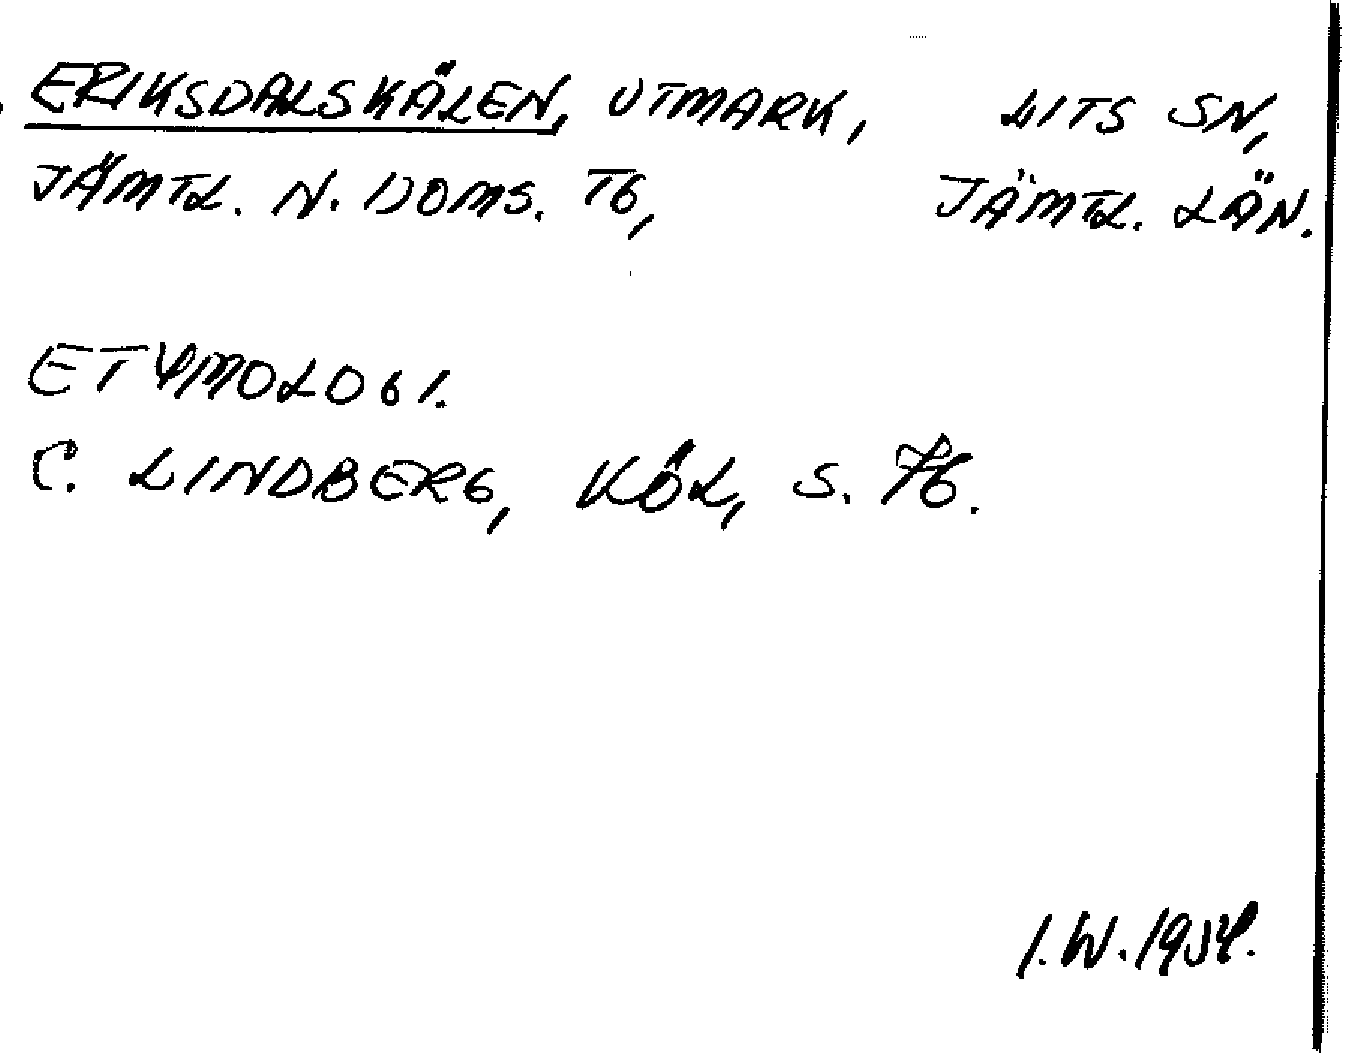 ERIKSDALSKÄLEN, UTMARK, LITS SN,
JÄMTL. N. DOMS. TG, JÄMTL. LÄN.
ETYMOLOGI.
C. LINDBERG, KÖL, S. 76.
I.W. 1954.